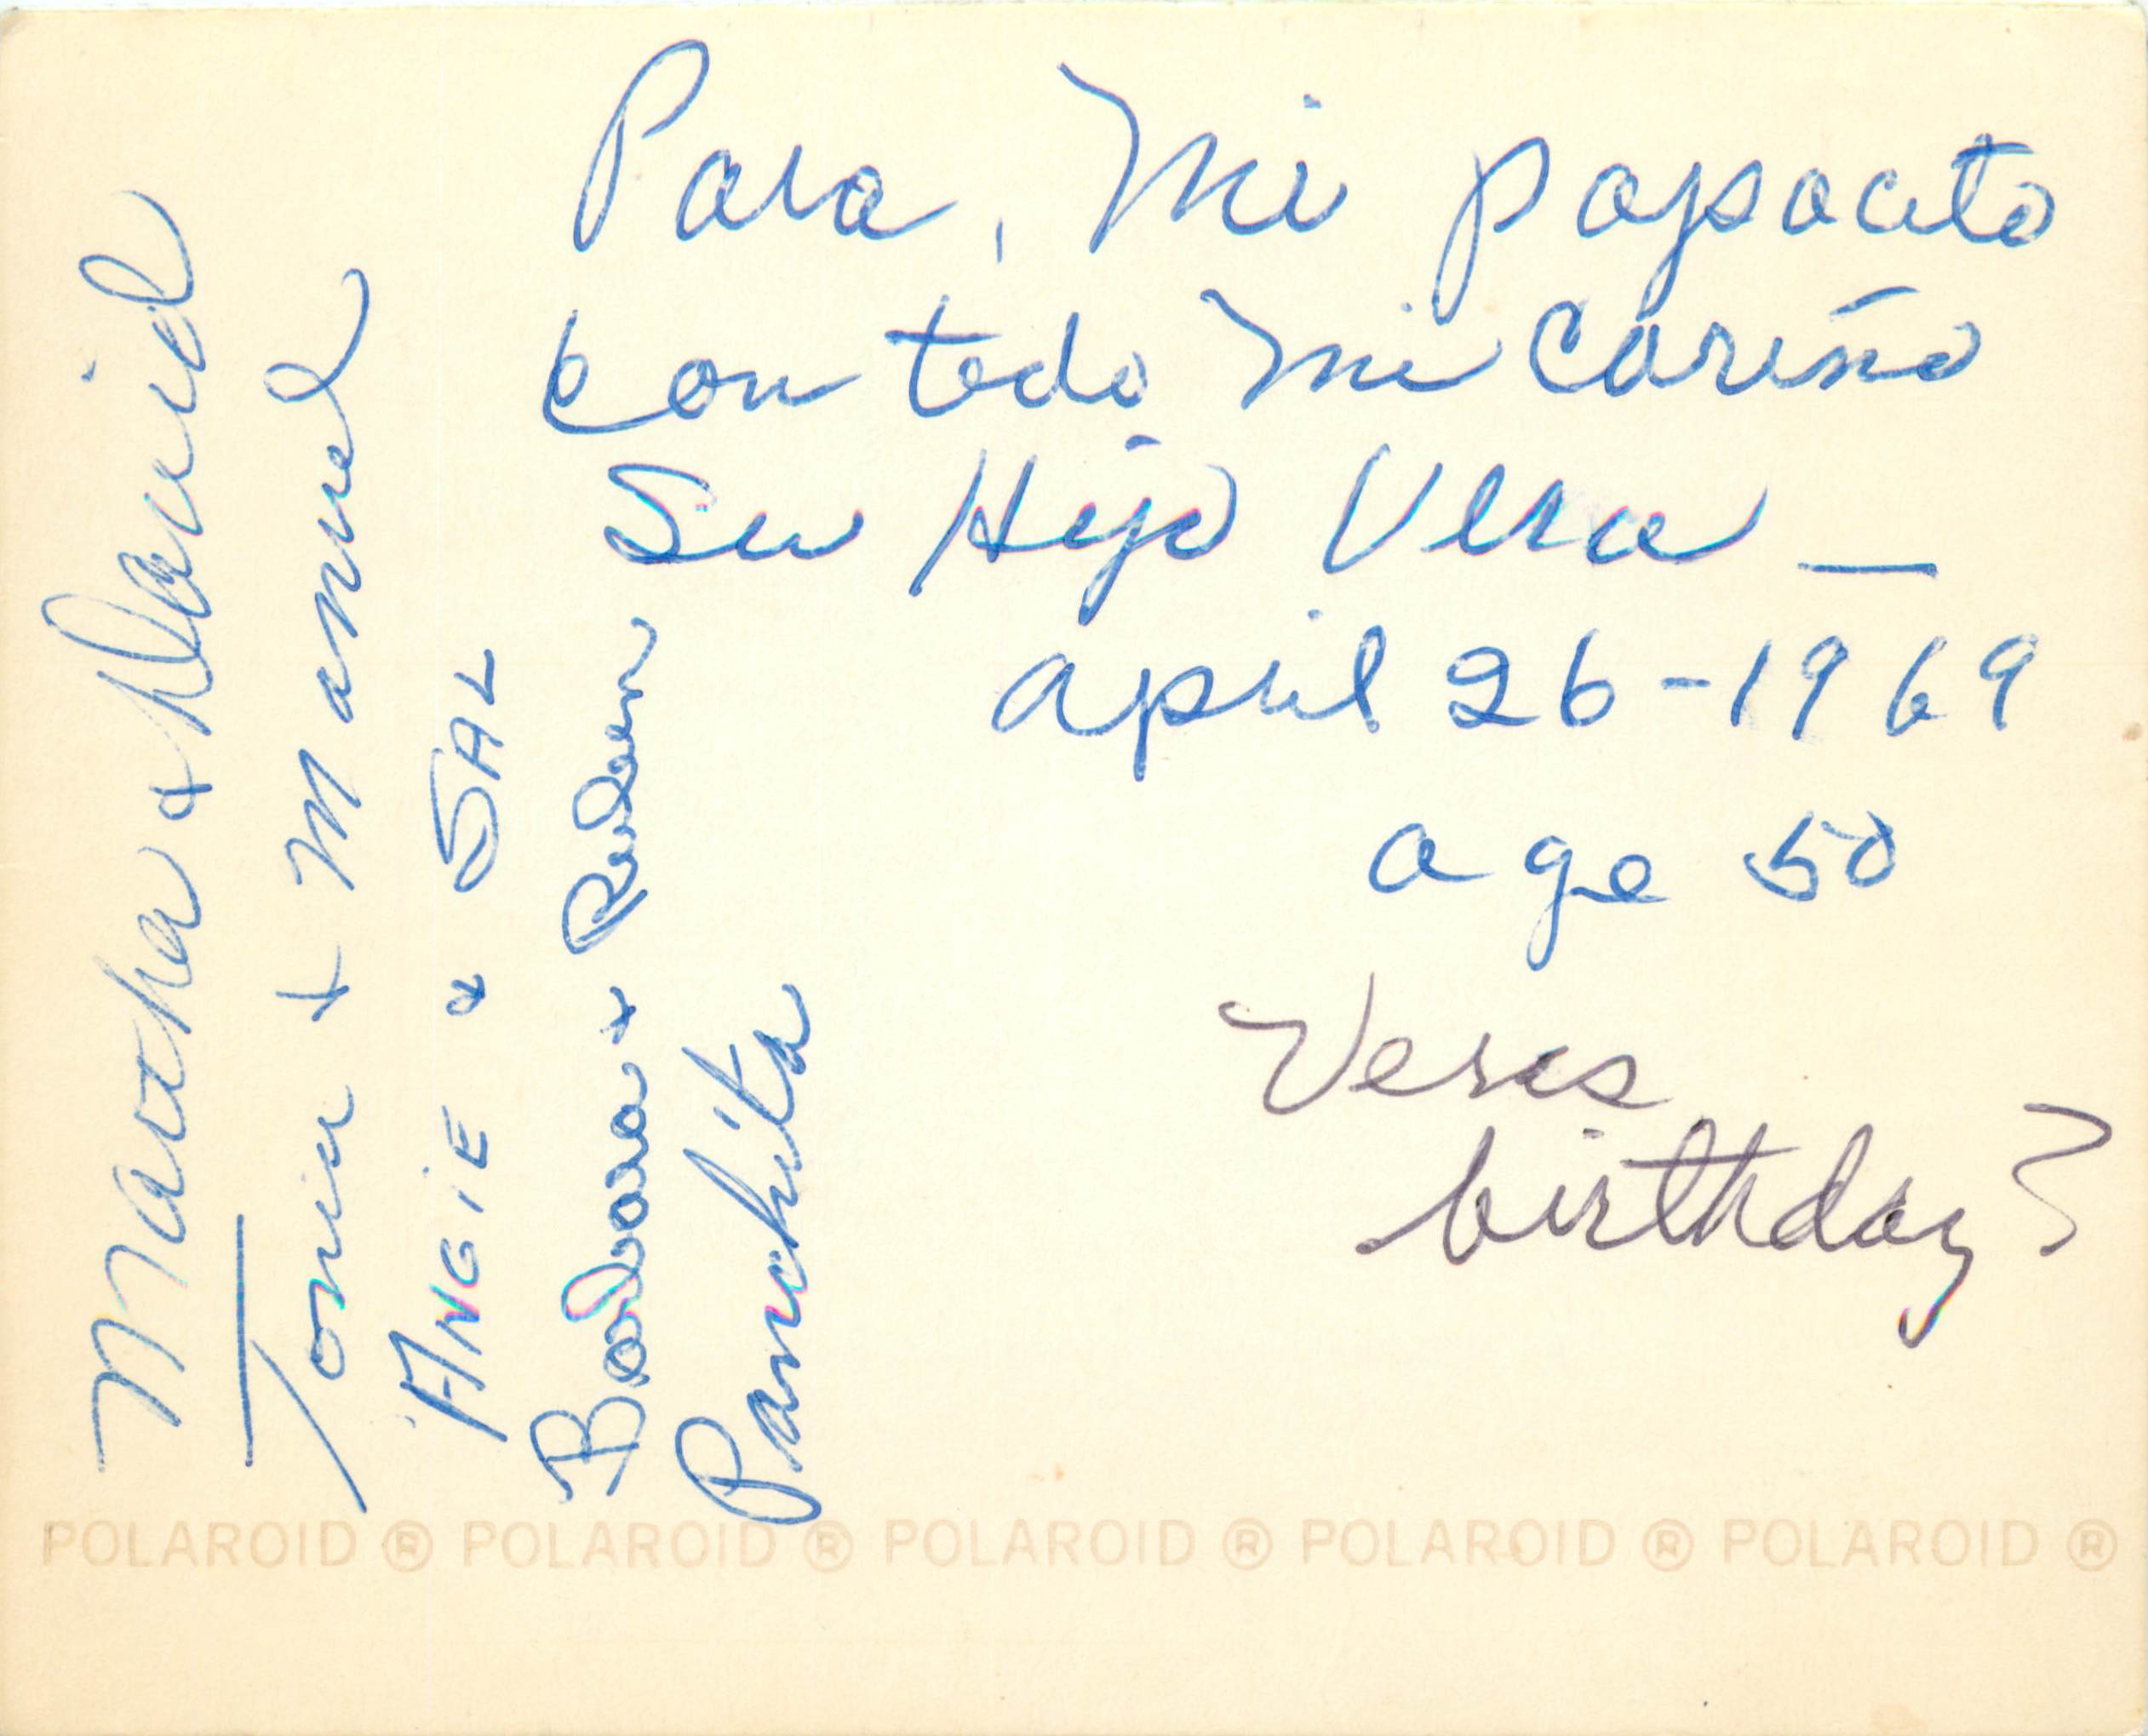 Para, Mi papacito
Con todo mi Cariño
Su Hija Vera —
april 26-1969
age 50
Veras
birthday?
Martha & David
Tonia + Manuel
ANGIE & SAL
Barbara + Ruben
Panchita
POLAROID ® POLAROID ® POLAROID ® POLAROID ® POLAROID ®